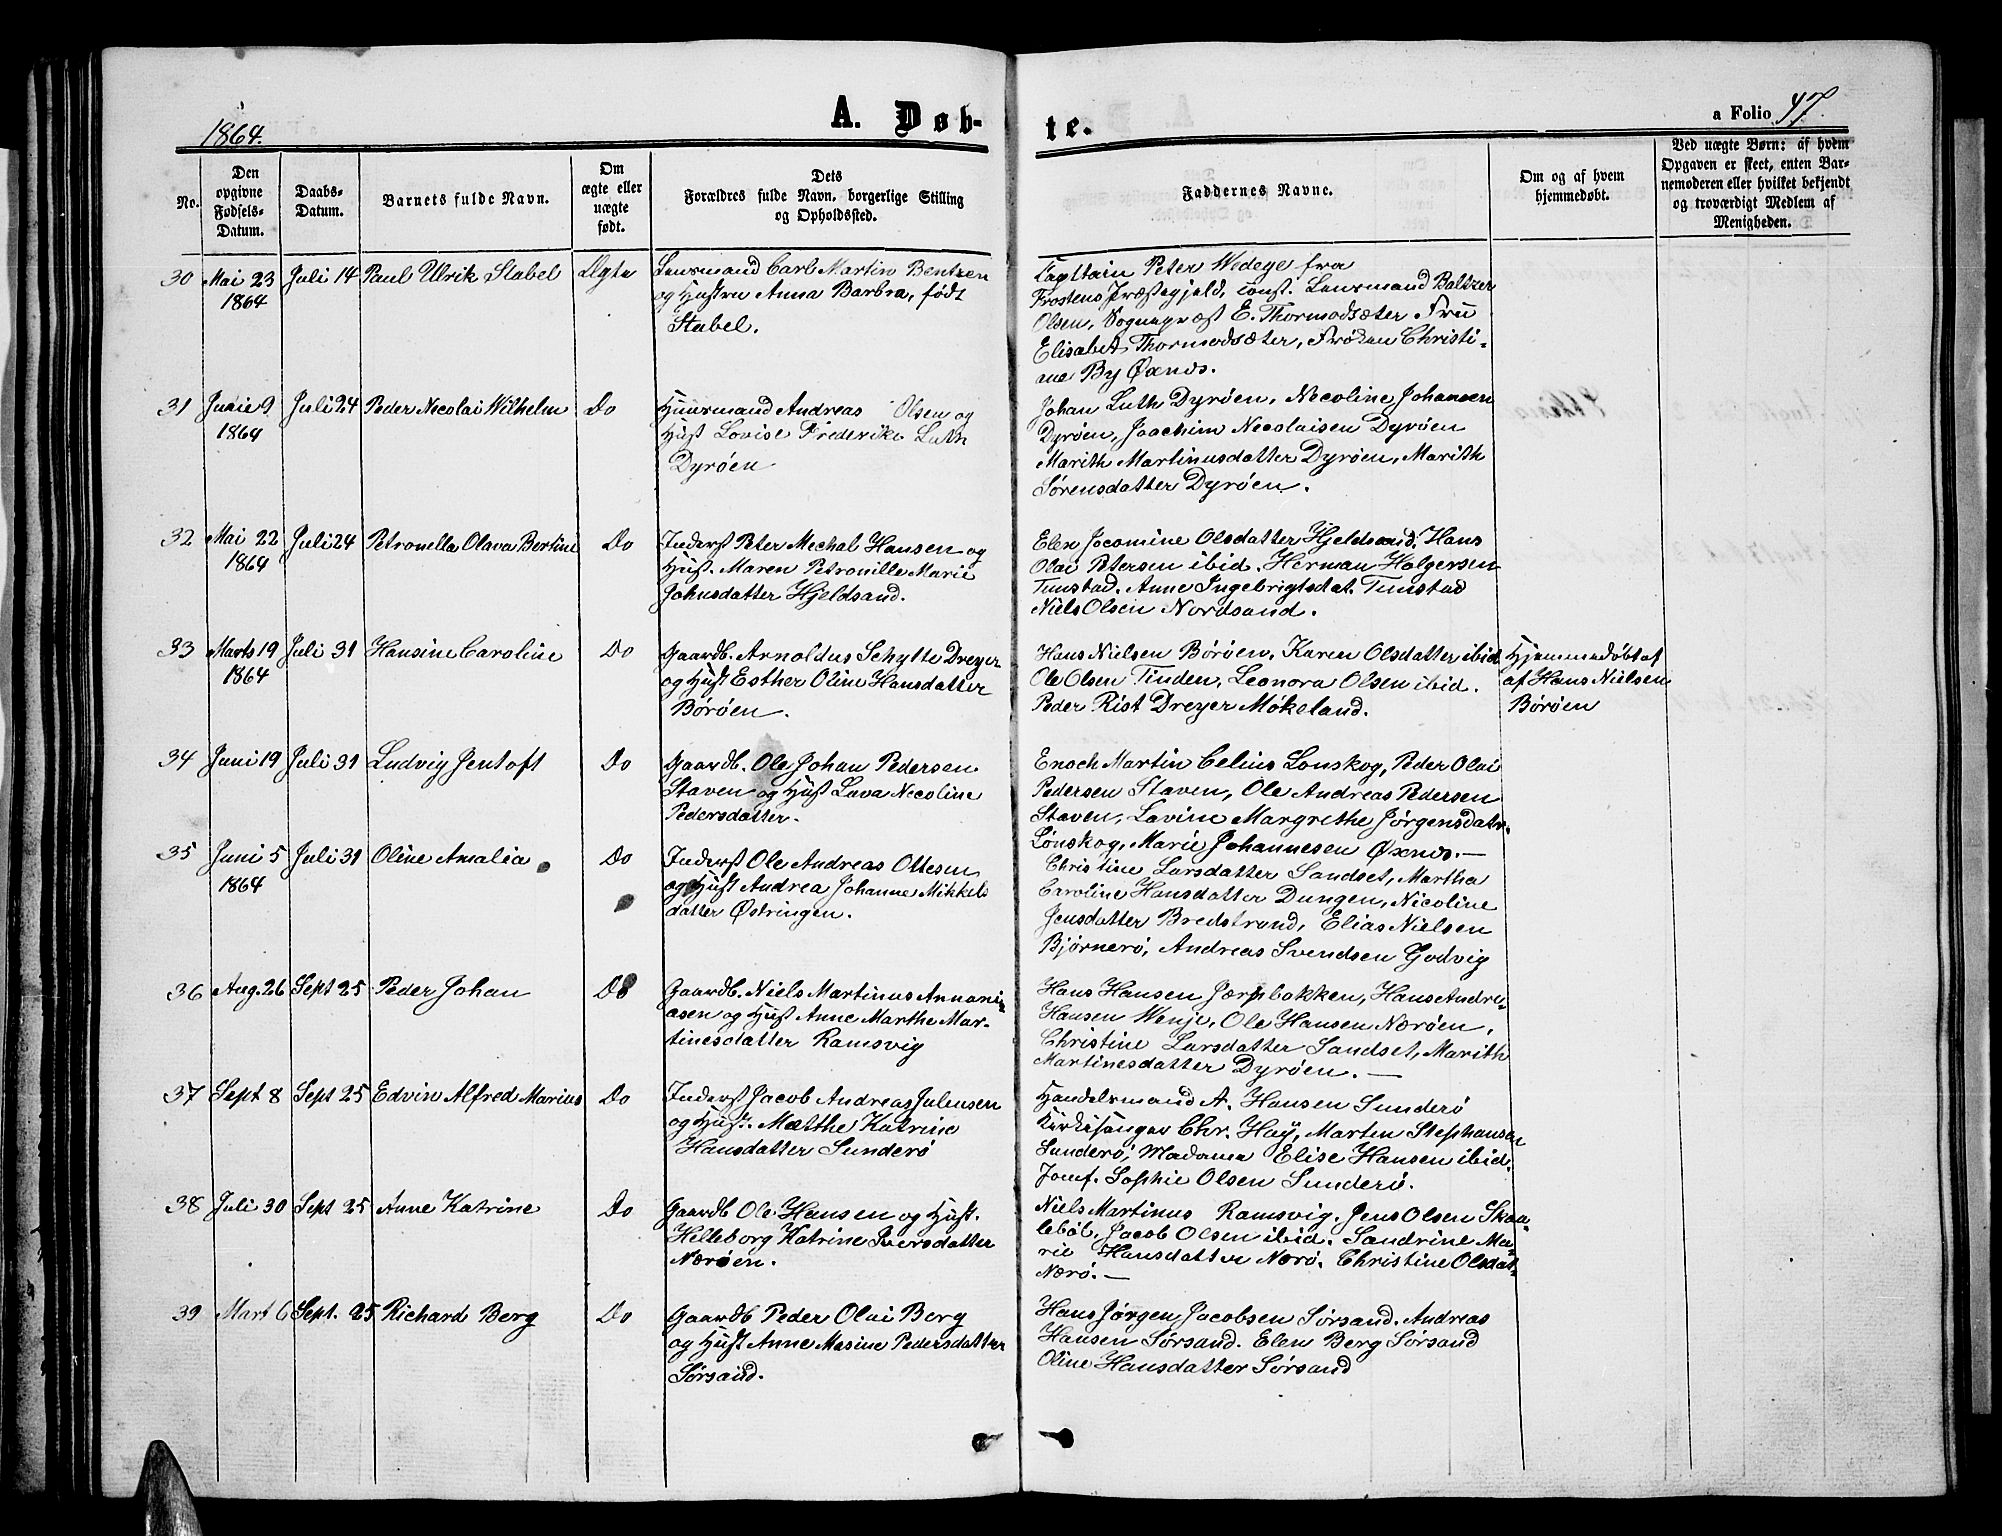 1864.
A. Døb-
te.
a Folio 47.
No.
Den
opgivne
Fødsels-
Datum.
Daabs-
Datum.
Barnets fulde Navn.
Om
ægte eller
uægte
født.
Dets
Forældres fulde Navn, borgerlige Stilling
og Opholdssted.
Faddernes Navne.
Om og af hvem
hjemmedøbt.
Ved uægte Børn: af hvem
Opgaven er skeet, enten Bar-
nemoderen eller hvilket bekjendt
og troværdigt Medlem af
Menigheden.
30 Mai 23 1864 Juli 14 Paul Ulrik Stabel Ægte
Lensmand Carl Martin Bentzen
og Hustru Anna Barbra, født
Stabel.
Capttain Peter Wedege fra
Trostens Præstegjeld, const. Lensmand Baltzer
Olsen, Sognepræst E. Thormodsæter Fru
Elisabet Thormodsæter, Frøken Christi-
ane By Øxnæs.
31 Junie 9 1864 Juli 24 Peder Necolai Wilhelm Do
Huusmand Andreas Olsen og
Hust Lovise Frederike Luth
Dyrøen
Johan Luth Dyrøen, Necoline Johansen
Dyrøen, Joachim Necolaisen Dyrøen
Marith Martinusdatter Dyrøen, Marith
Sørensdatter Dyrøen.
32 Mai 22 1864 Juli 24 Petronella Olava Bertine Do
Inderst Peter Mechal Hansen og
Hust. Maren Petronille Marie
Johnsdatter Hjeldsand.
Elen Jacomine Olsdatter Hjeldsand, Hans
Olai Petersen ibid. Herman Holgersen
Tunstad. Anne Ingebrigtsdat. Tunstad
Niels Olsen Nordsand.
33 Marts 19 1864 Juli 31 Hansine Caroline Do
Gaardb. Arnoldus Schytte Dreyer
og Hust Esther Oline Hansdatter
Børøen.
Hans Nielsen Børøen, Karen Olsdatter ibid
Ole Olsen Tinden, Leonora Olsen ibid.
Peder Rist Dreyer Møkeland.
Hjemmedøbt af
af Hans Nielsen
Børøen
34 Juni 19 Juli 31 Ludvig Jentoft Do
Gaardb. Ole Johan Pedersen
Staven og Hust Lava Necoline
Pedersdatter.
Enoch Martin Celius Lonskog, Peder Olai
Pedersen Staven, Ole Andreas Pedersen
Staven, Lavine Margrethe Jørgensdatr.
Lønskog, Marie Johannesen Øxnæs.—
35 Juni 5 1864 Juli 31 Oline Amalia Do
Inderst Ole Andreas Ottesen
og Hust Andrea Johanne Mikkels
datter Østringen.
Christine Larsdatter Sandset, Martha
Caroline Hansdatter Dungen, Nicoline
Jensdatter Bredstrand, Elias Nielsen
Bjørnerö, Andreas Svendsen Godvig
36 Aug. 26 Sept 25 Peder Johan Do
Gaardb. Niels Martinus Annani-
asen og Hust Anne Marthe Mar-
tinesdatter Ramsvig
Hans Hansen Jærnbakken, Hans Andre-
Hansen Wenje, Ole Hansen Nærøen,
Christine Larsdatter Sandset, Marith
Martinesdatter Dyrøen.—
37 Sept 8 Sept 25 Edvin Alfred Marius Do
Inderst Jacob Andreas Julensen
og Hust. Mætthe Katrine
Hansdatter Sunderø
Handelsmand A. Hansen Sunderø
Kirkesanger Chr. Høÿ, Martin Stephansen
Sunderø, Madame Elise Hansen ibid.
Jomf. Sophie Olsen Sunderø.
38 Juli 30 Sept 25 Anne Katrine Do
Gaardb Ole Hansen og Hust.
Helleborg Katrine Iversdatter
Nærøen.
Niels Martinus Ramsvig. Jens Olsen Skou-
lebøl, Jacob Olsen ibid. Sandrine Ma-
rie Hansdatter Nærö. Christine Olsdat-
Nærö.—
39 Mart 6 Sept. 25 Richard Berg Do
Gaardb Peder Olai Berg
og Hust Anne Masine Pedersdatter
Sørsand.
Hans Jørgen Jacobsen Sørsand. Andreas
Hansen Sørsand. Elen Berg Sørsand
Oline Hansdatter Sørsand